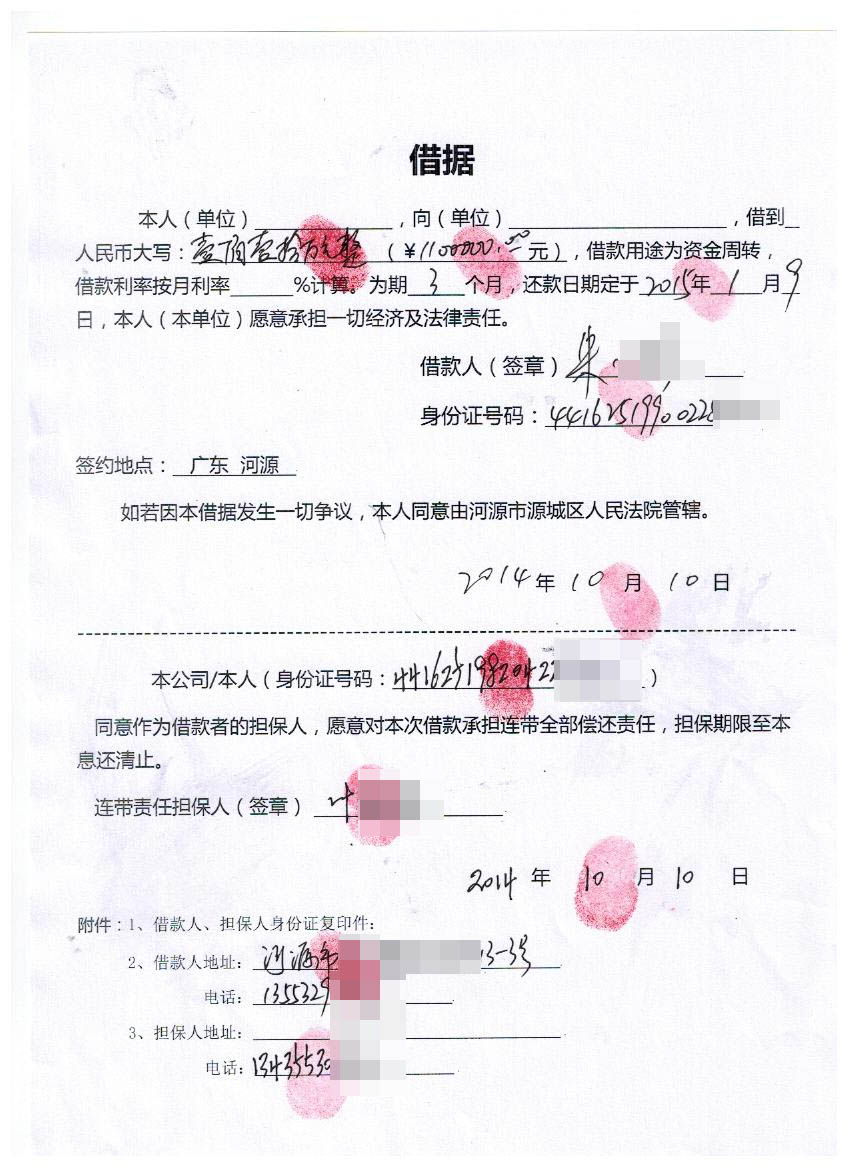 借据
本人（单位）____________，向（单位）____________________，借到
人民币大写：壹佰壹拾万元整（¥1100000.00元），借款用途为资金周转，
借款利率按月利率______%计算。为期 3 个月，还款日期定于 2015年 1 月 9
日，本人（本单位）愿意承担一切经济及法律责任。
借款人（签章）
身份证号码：4416251990022
签约地点： 广东 河源
如若因本借据发生一切争议，本人同意由河源市源城区人民法院管辖。
2014 年 10 月 10 日
本公司/本人（身份证号码：44162519820422 ）
同意作为借款者的担保人，愿意对本次借款承担连带全部偿还责任，担保期限至本
息还清止。
连带责任担保人（签章） 叶
2014 年 10 月 10 日
附件：1、借款人、担保人身份证复印件：
2、借款人地址： 河源市 13-3号
电话： 1355329
3、担保人地址：
电话：1343553